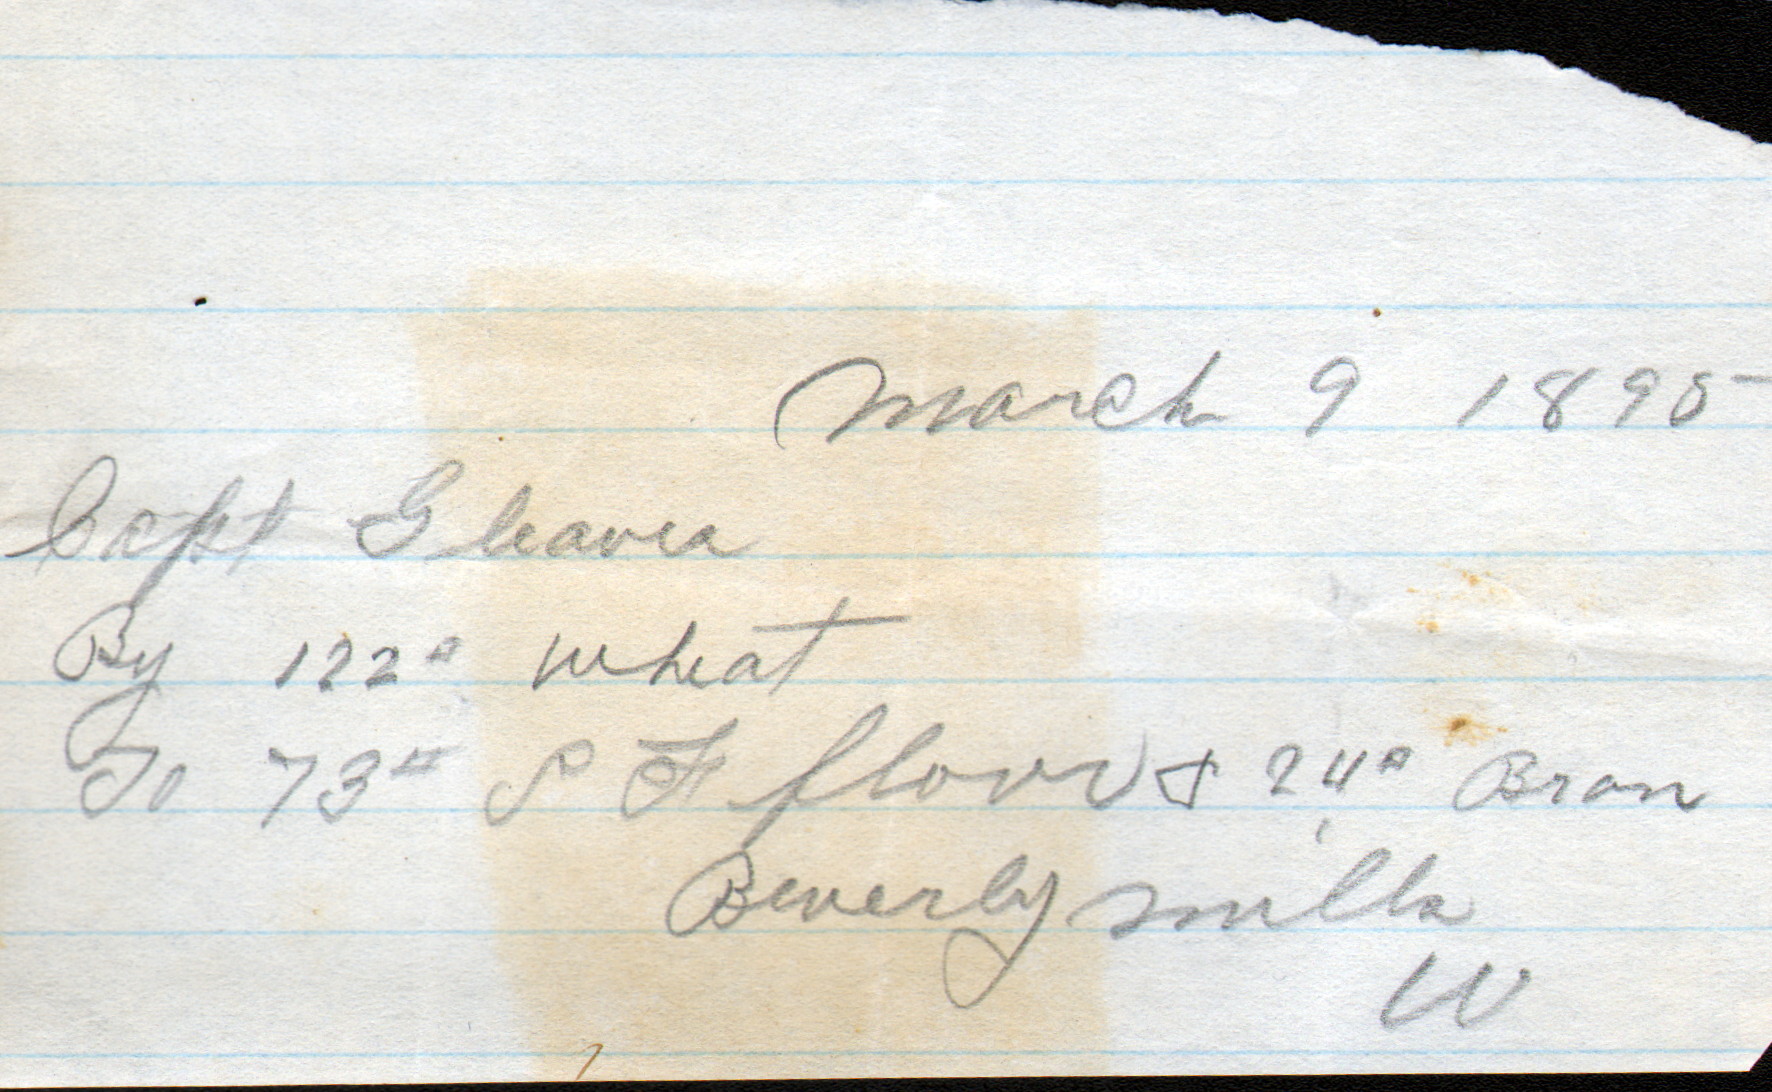 March 9 1895
Capt Gleaves
By 122# Wheat
To 73# S F flour & 24# Bran
Beverly Mills
W